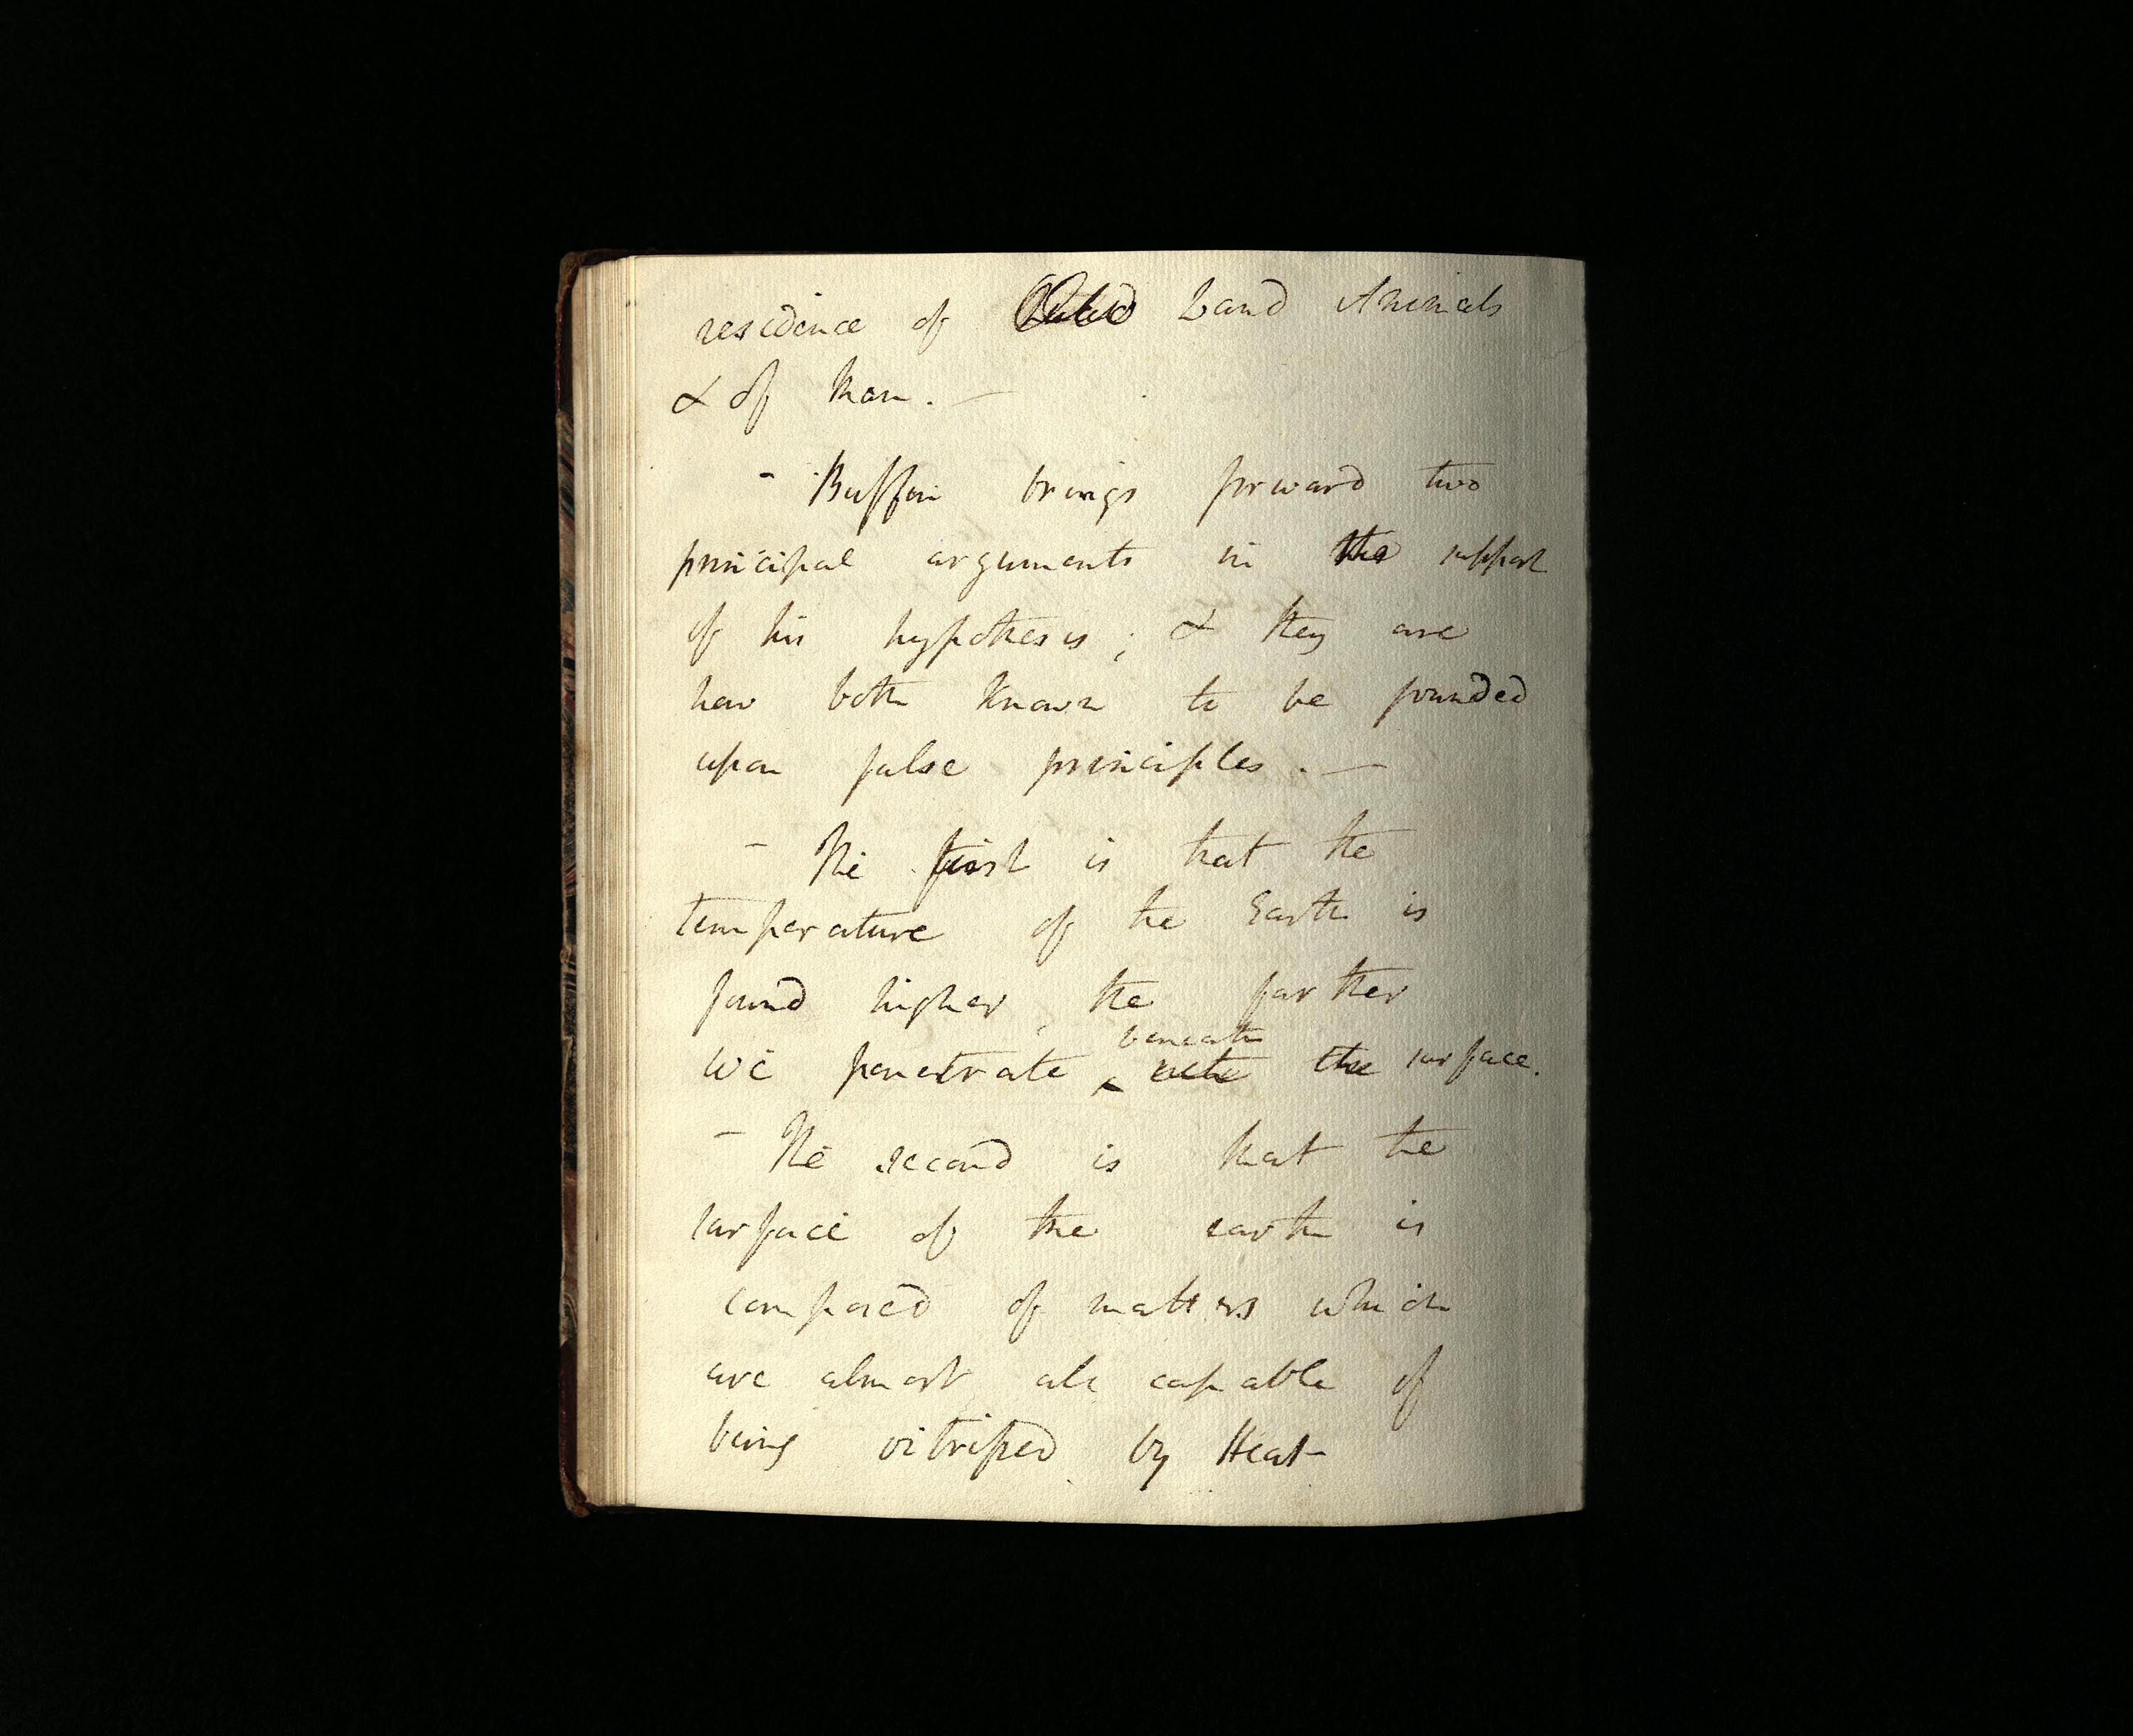 residence of Land Animals
& of Man. —
- Buffon brings forward two
principal arguments in the support
of his hypothesis; & they are
now both known to be founded
upon false principles. —
- The first is that the
temperature of the Earth is
found higher, the farther
beneath
we penetrate the surface.
- The second is that the
surface of the earth is
composed of matters which
are almost all capable of
being vitrified by Heat